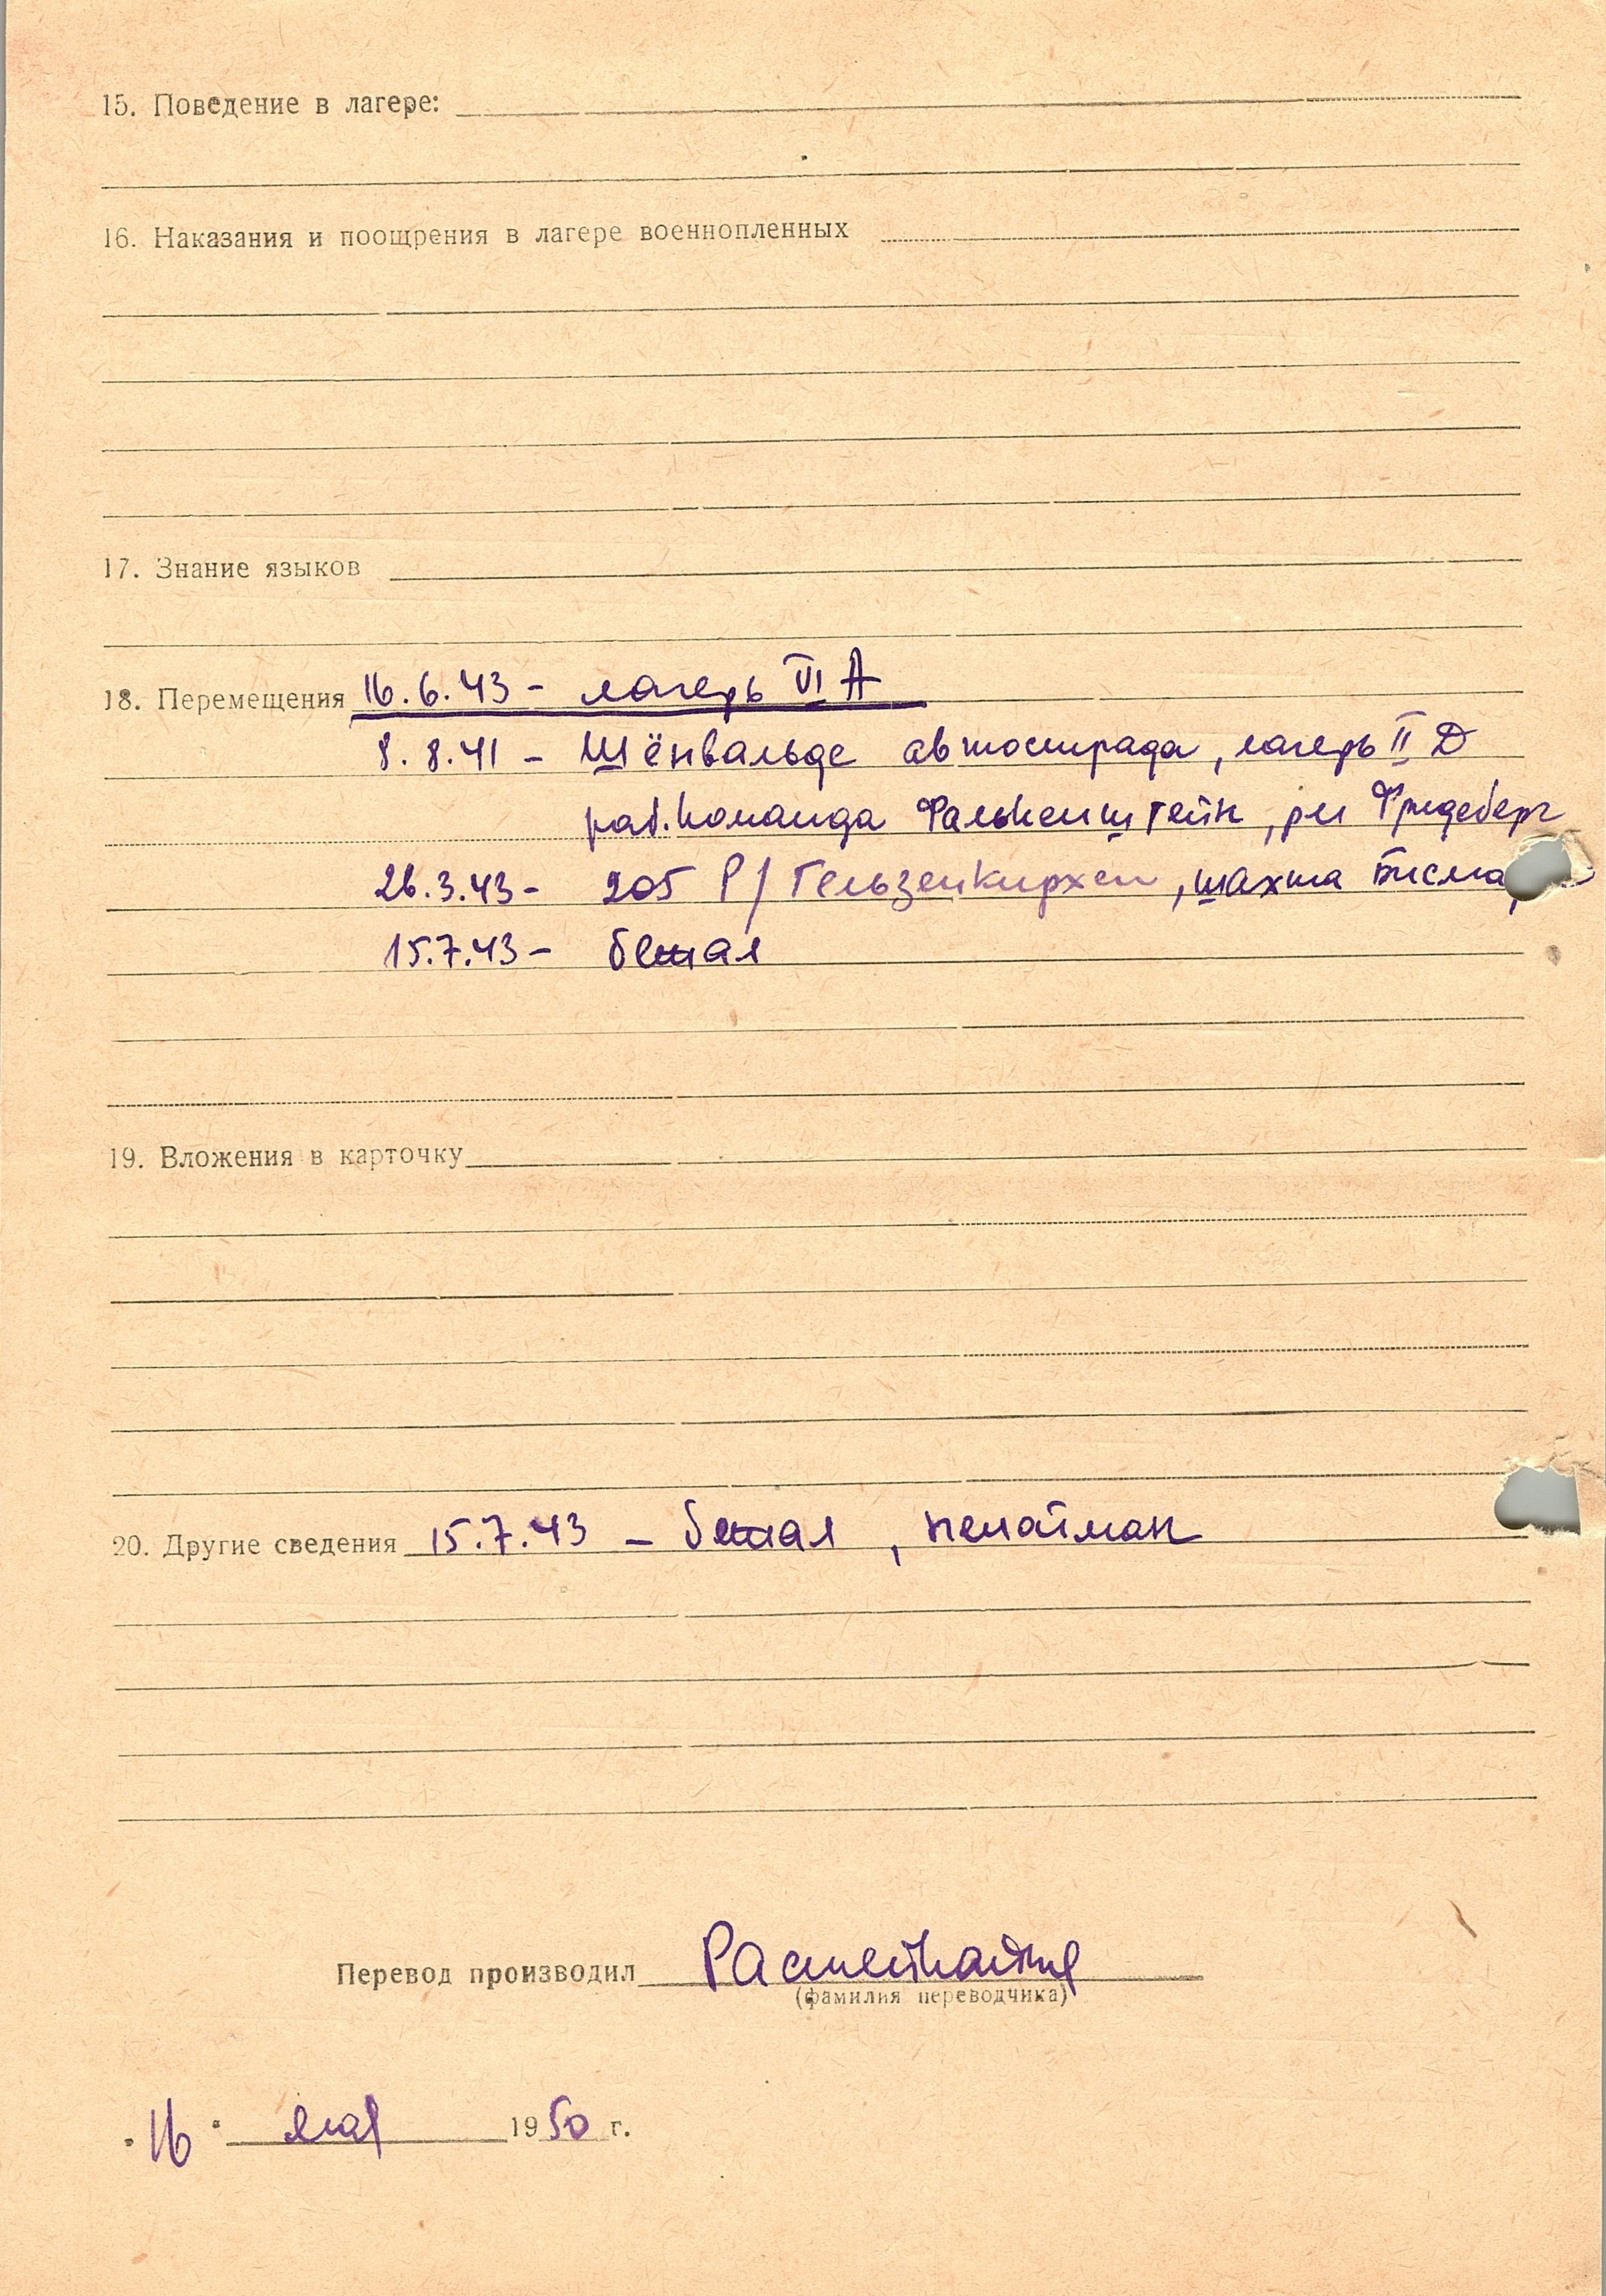 15. Поведение в лагере:
16. Наказания и поощрения в лагере военнопленных
17. Знание языков
18. Перемещения 16.6.43 - лагерь VI A
8.8.41 - Шёнвальде автострада, лагерь II Д
раб. команда Фалькенштейн, рн Фридеберг
26.3.43 - 205 Р/Гельзенкирхен, шахта Бисма
15.7.43 - бежал
19. Вложения в карточку
20. Другие сведения 15.7.43 - бежал, непойман
Перевод производил
(фамилия переводчика)
"16" мая 1950 г.